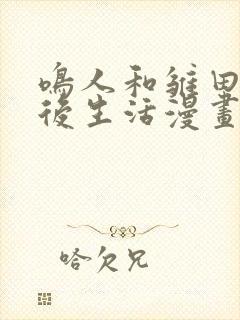 鳴人和雛田
後生活漫畫
哈欠兄